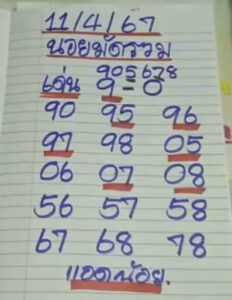 11/4/67
น้อยมัดรวม
905678
เด่น 9-0
90 95 96
97 98 05
06 07 08
56 57 58
67 68 78
แอดน้อย.